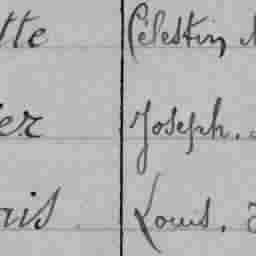 tte Célestin
er Joseph.
ris Louis.